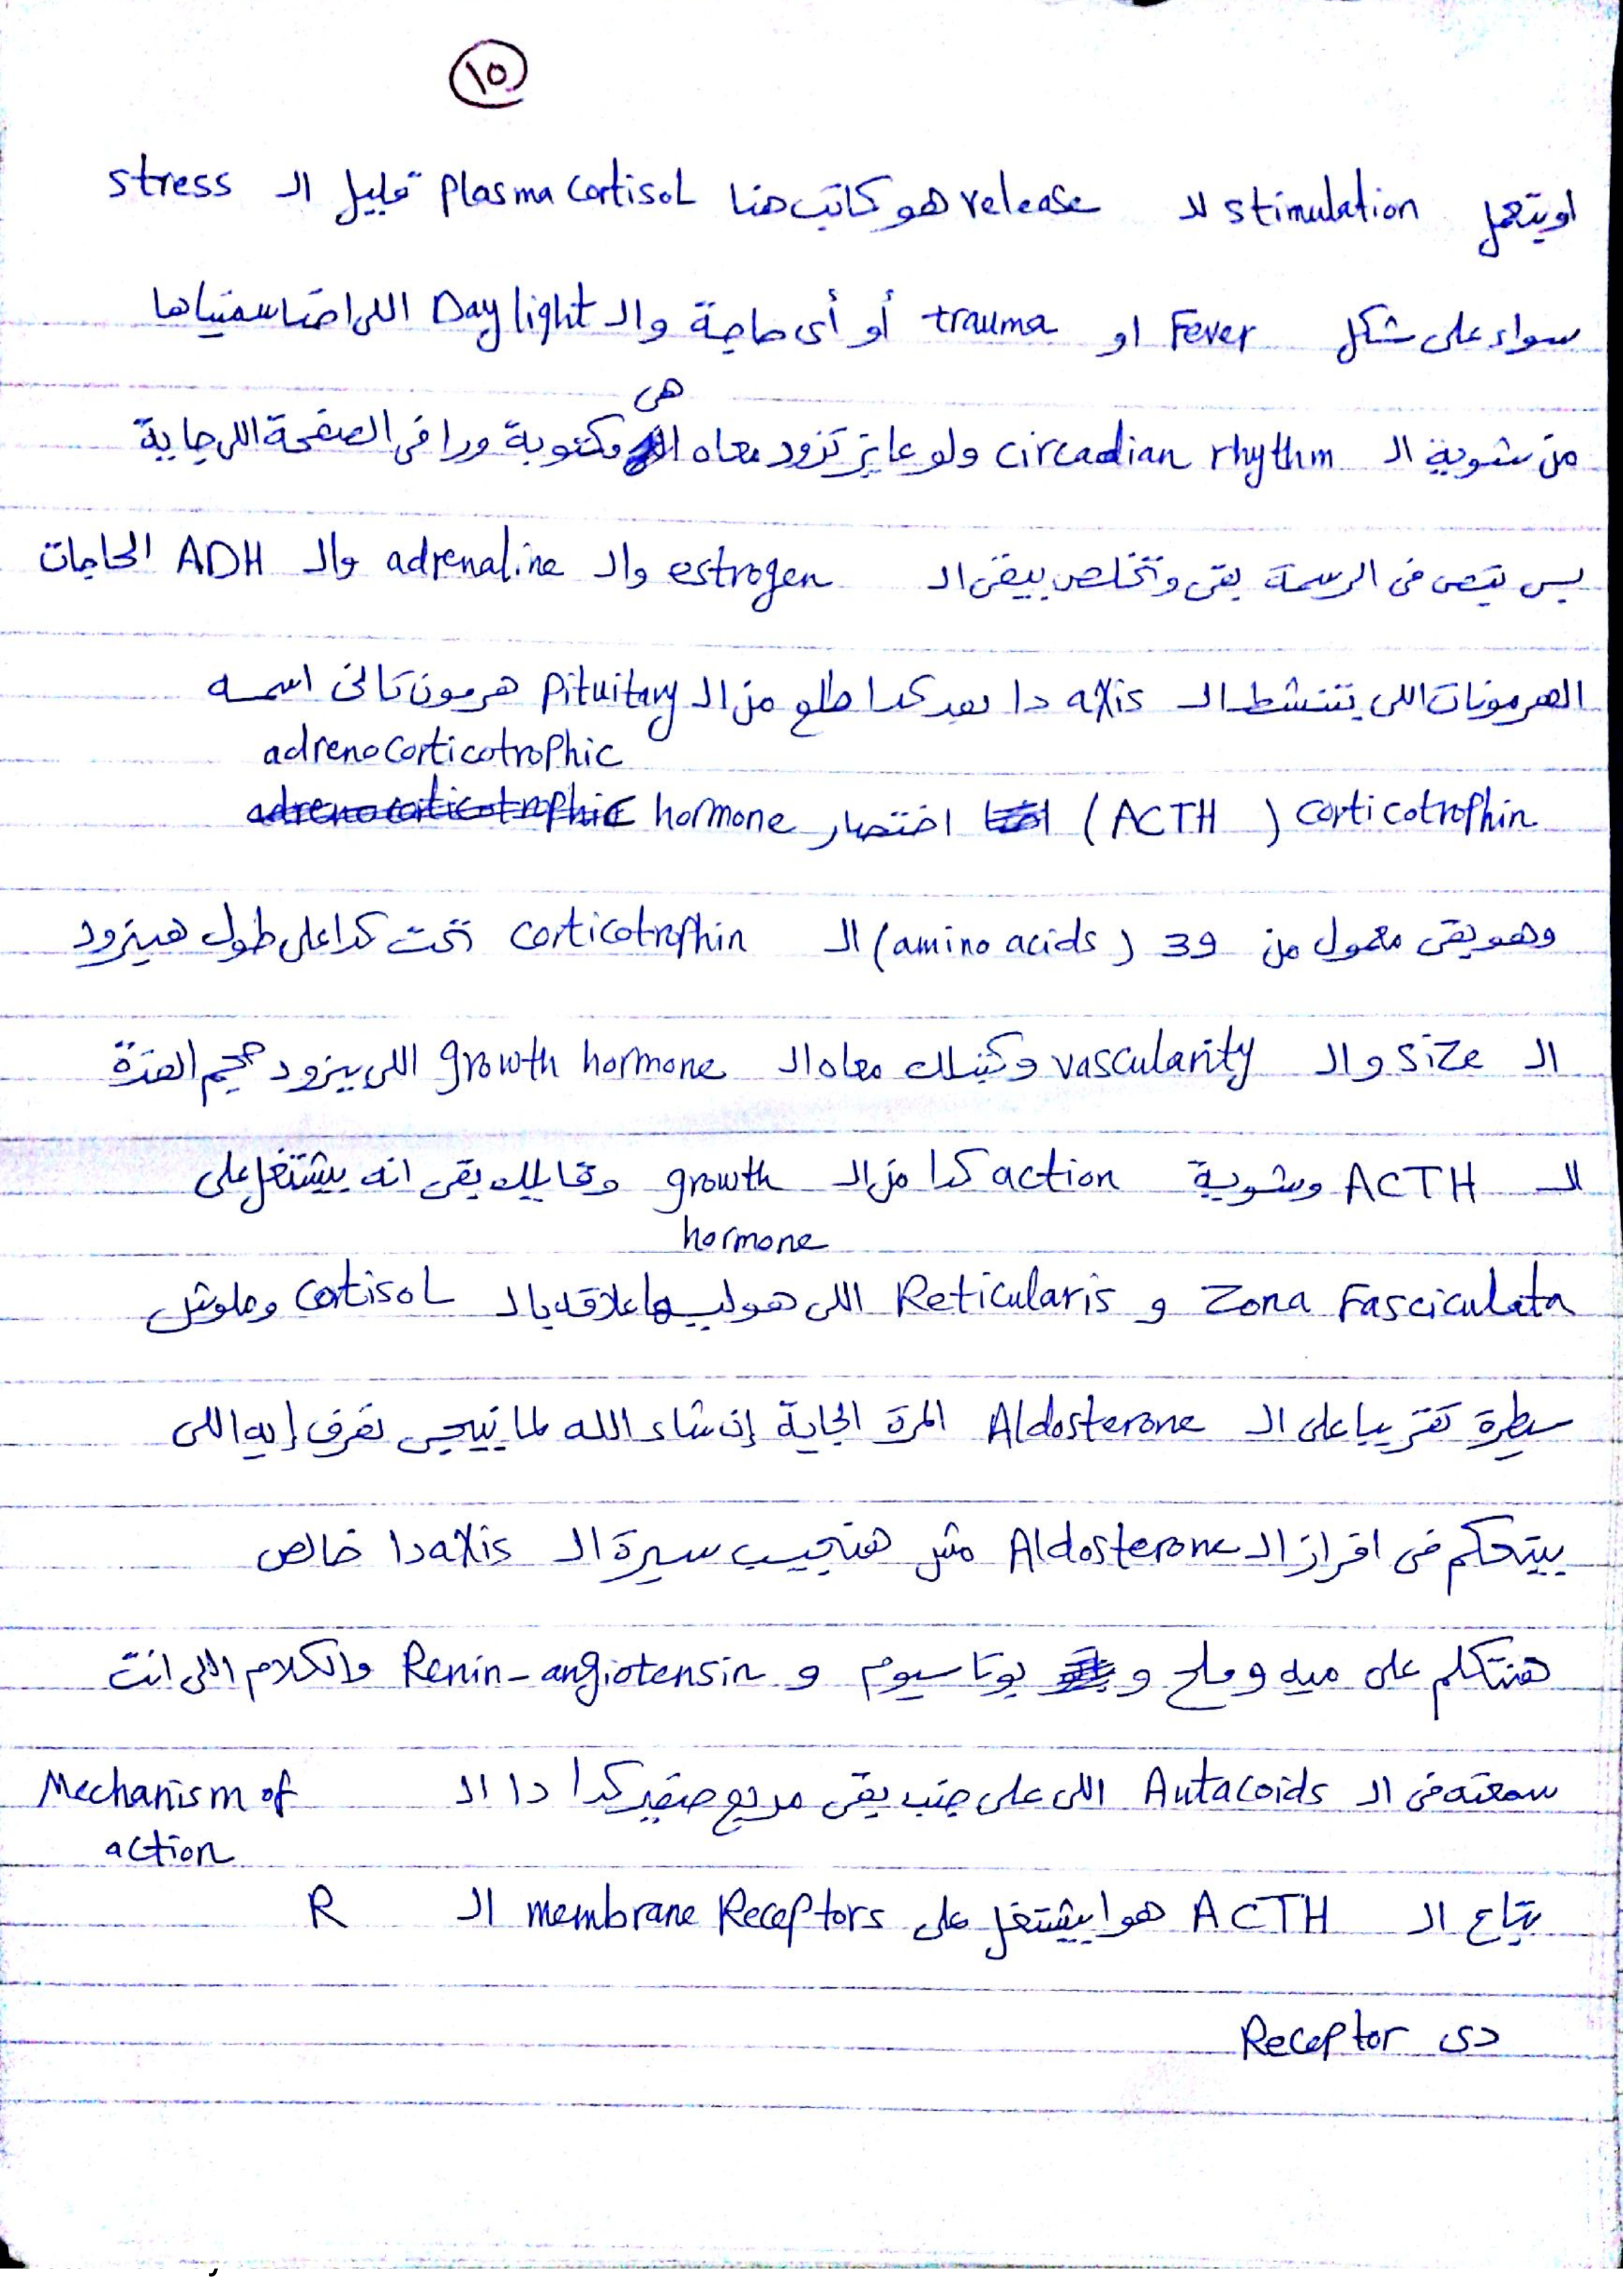 ١٥
او بتعمل stimulation للـ release هو كاتب هنا plasma cortisol قليل الـ stress
سواء على شكل Fever او trauma أو أى حاجة والـ Day light اللى احنا سمناها
من شوية الـ circadian rhythm ولو عايز تزود معاه هى مكتوبة ورا فى الصفحة اللى جاية
بس بتبص فى الرسمة بقى وتخلص يبقى الـ estrogen والـ adrenaline والـ ADH الحاجات
الهرمونات اللى بتنشط الـ axis دا بعد كدا طلع من الـ Pituitary هرمون تانى اسمه
adrenocorticotrophic
corticotrophin (ACTH) اختصار hormone
وهو بقى معمول من 39 (amino acids) الـ corticotrophin تحت كدا على طول هيزود
الـ size و الـ vascularity وكتبلك معاه الـ growth hormone اللى بيزود حجم الغدة
الـ ACTH وشوية action كدا من الـ growth وقايلك بقى انه بيشتغل على
hormone
Zona Fasciculata و Reticularis اللى هو ليها علاقه بالـ cortisol وملوش
سيطرة تقريبا على الـ Aldosterone المرة الجاية إن شاء الله لما نيجى نعرف إيه اللى
بيتحكم فى افراز الـ Aldosterone مش هنجيب سيرة الـ axis دا خالص
هنتكلم على ميه وملح و بوتاسيوم و Renin-angiotensin والكلام اللى انت
سمعته فى الـ Autacoids اللى على جنب بقى مربع صغير كدا دا الـ Mechanism of
action
بتاع الـ ACTH هوا بيشتغل على membrane Receptors الـ R
دى Receptor